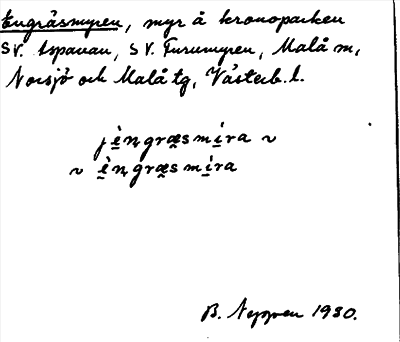 Engräsmyren, myr å kronoparken
SV. Aspavan, SV. Furumyren, Malå m,
Norsjö och Malå tg, Västerb. l.
jè̱ngræ̱smi̱ra ~
~ è̱ngræ̱smi̱ra
B. 1930.